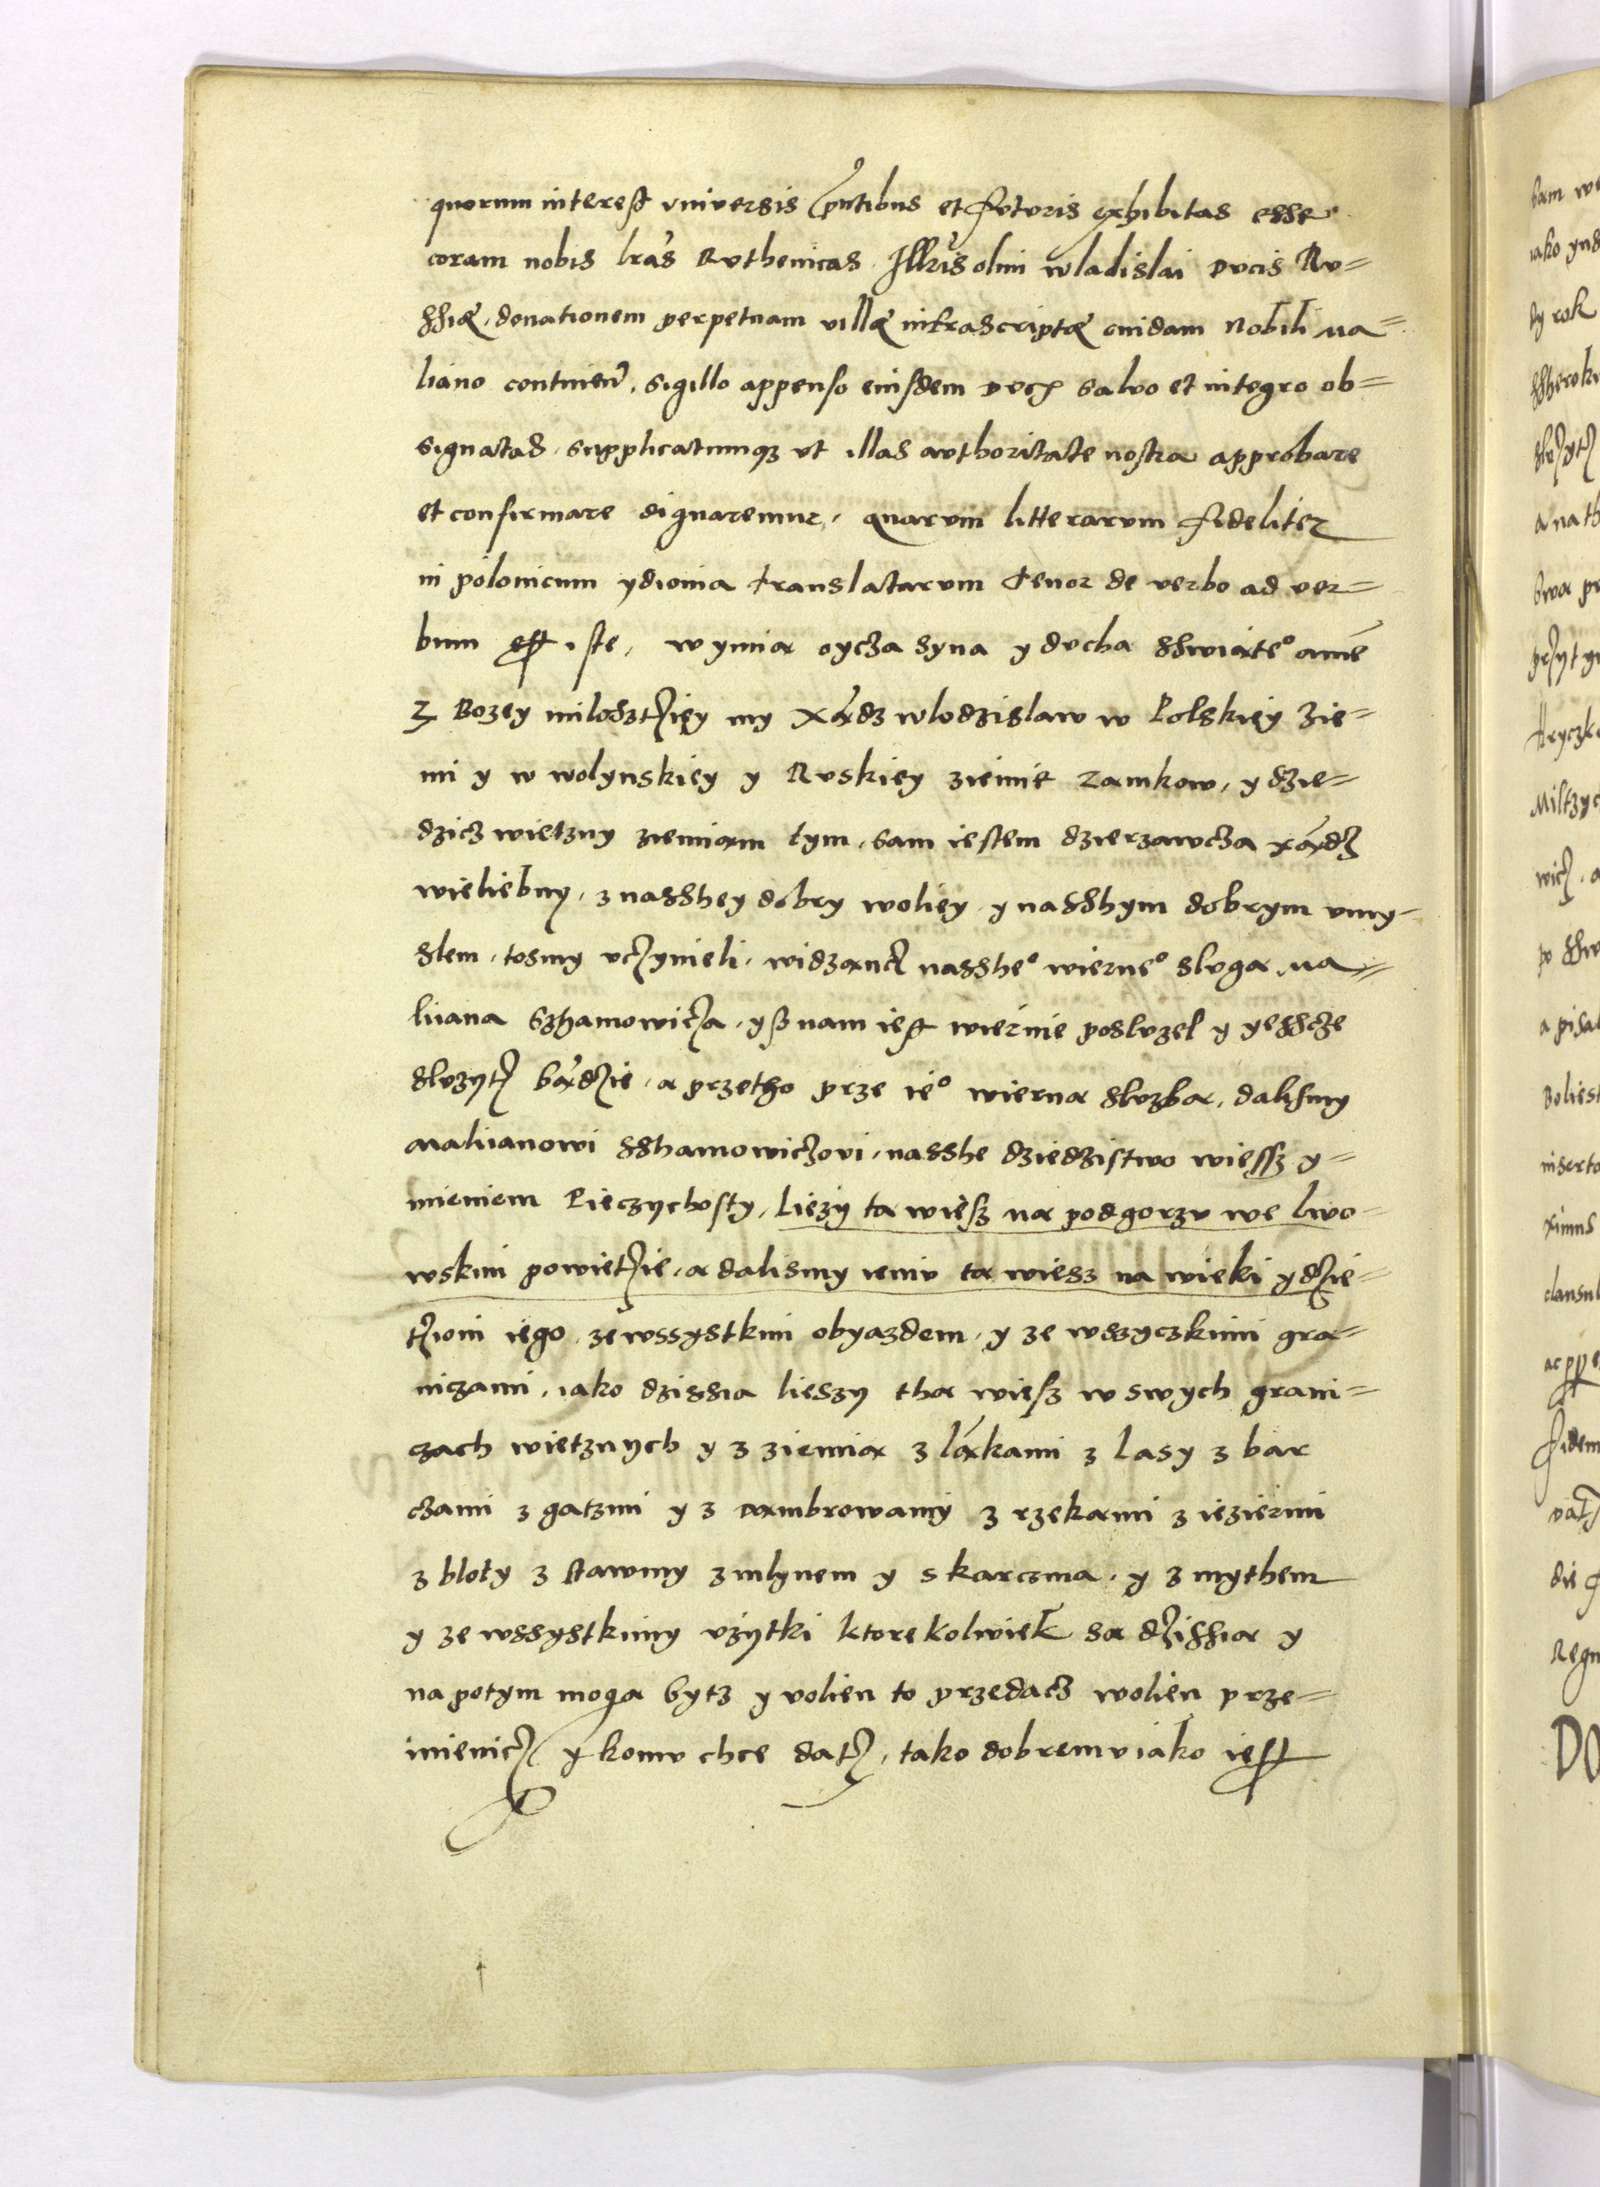 quorum interest vniversis pntibus et futuris exhibitas esse
coram nobis lras Ruthenicas Illris olim wladislai Ducis Ru=
ssiæ, donationem perpetuam villæ infrascriptæ cuidam Nobili Ma=
liano continen, sigillo appenso eiusdem Ducis salvo et integro ob=
signatas, supplicatumq3 vt illas authoritate nostra approbare
et confirmare dignaremur, quarum litterarum fideliter
in polonicum ydioma translatarum tenor de verbo ad ver=
bum est iste, w ymia oycza syna y ducha sswiate° ame
Z Bozey milosztziey my xądz wlodzislaw w Polskiey Zie=
mi y w wolynskiey y Ruskiey ziemie zamkow, y dzie=
dzicz wietzny ziemiam tym, sam iestem dzierzawcza xądz
wieliebny, z nasshey dobry woliey y nasshym dobrym vmy=
slem, tosmy vczynieli, widzancz nasshe° wierne° sluga Ma=
liiana Szhamowicza, ysz nam iest wiernie posluzel y yesscze
sluzytz bądzie, a przetho prze ie° wierna sluzba, dalismy
Maliianowi sshamowiczovi, nasshe dziedzistwo wiessz y=
mieniem Pieczychosty, liezy ta wiesz na podgorzu we lwo=
wskim powietzie, a dalismy iemu ta wiesz na wieki y dzie=
tziom iego, ze wssystkimi obyazdem, y ze wszyczkimi gra=
niczami, iako dzissia lieszy tha wiesz w swych grani=
czach wietznych y z ziemia zląkami z lasy z bar
czami z gatzmi y z dambrowamy z rzekami z ieziermi
z bloty z stawmy z mlynem y s karczma, y z mythem
y ze wssystkimy vzytki ktorekolwiek sa dzissia y
na potym moga bytz y volien to przedacz wolien prze=
mienicz y komu chce datz, tako dobremu iako iest
bam we
iako ynd
ty rok
ssheroki
a nath
Hryczko
a pisal
Boliest
inserta
ximus
clausul
fidem
die
Regn
DO